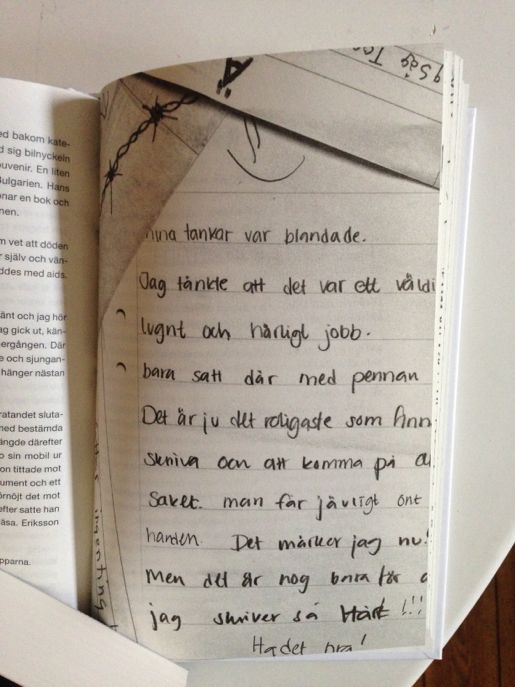 ed bakom kate-
d sig bilnyckeln
ouvenir. En liten
Bulgarien. Hans
onar en bok och
nen.
m vet att döden
r själv och vän-
ddes med aids.
änt och jag hör
ag gick ut, kän-
ergången. Där
e och sjungan-
hänger nästan
ratandet sluta-
med bestämda
ängde därefter
o sin mobil ur
on tittade mot
ument och ett
örnöjt det mot
efter satte han
äsa. Eriksson
pparna.
Säg
Ä
mina tankar var blandade.
Jag tänkte att det var ett väldi
lugnt och härligt jobb.
bara satt där med pennan
Det är ju det roligaste som finn
skriva och att komma på
saker. man får jävligt ont
handen. Det märker jag nu!
Men det är nog bara för a
jag skriver så Hårt!!!
Ha det bra!
ingenting